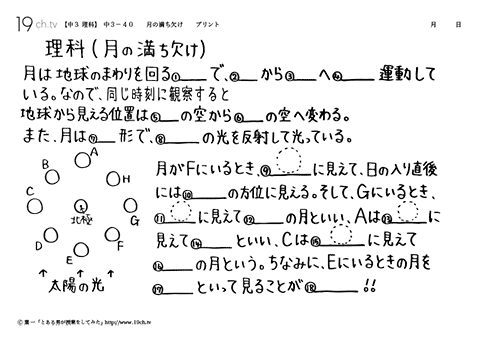 19ch.tv 【中3 理科】 中3-40 月の満ち欠け プリント 月 日
理科（月の満ち欠け）
月は地球のまわりを回る①____で、②____から③____へ④____運動して
いる。なので、同じ時刻に観察すると
地球から見える位置は⑤____の空から⑥____の空へ変わる。
また、月は⑦____形で、⑧____の光を反射して光っている。
A
B
H
C
北極
G
D
F
E
太陽の光
月がFにいるとき、⑨____に見えて、日の入り直後
には⑩____の方位に見える。そして、Gにいるとき、
⑪____に見えて⑫____の月といい、Aは⑬____に
見えて⑭____といい、Cは⑮____に見えて
⑯____の月という。ちなみに、Eにいるときの月を
⑰____といって見ることが⑱____!!
©葉一「とある男が授業をしてみた」http://www.19ch.tv